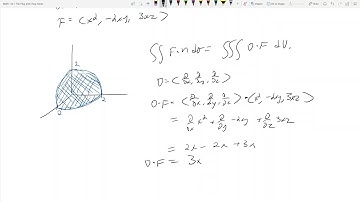 F = ⟨x², -2xy, 3xz⟩
∬ F·n dσ = ∭ ∇·F dV.
∇ = ⟨∂/∂x, ∂/∂y, ∂/∂z⟩
∇·F = ⟨∂/∂x, ∂/∂y, ∂/∂z⟩·⟨x², -2xy, 3xz⟩
= ∂/∂x x² + ∂/∂y -2xy + ∂/∂z 3xz
= 2x - 2x + 3x
∇·F = 3x
2
2
2